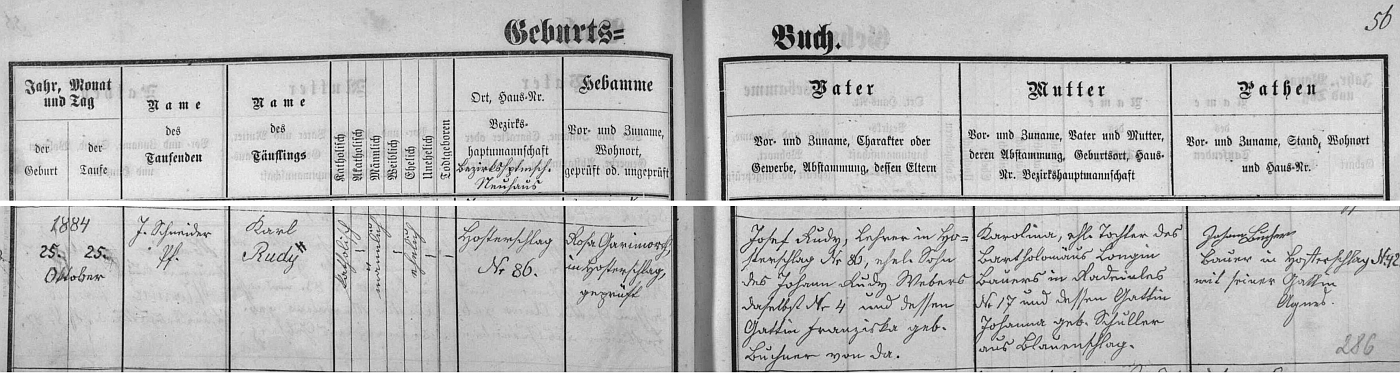 56
Geburts=
Buch.
Jahr, Monat
und Tag
der
Geburt
der
Taufe
Name
des
Taufenden
Name
des
Täuflings
Katholisch
Akatholisch
Männlich
Weiblich
Ehelich
Unehelich
Todtgeboren
Ort, Haus-Nr.
Bezirks-
hauptmannschaft
Bezirkshptmsch.
Neuhaus
Hebamme
Vor- und Zuname,
Wohnort,
geprüft od. ungeprüft
Vater
Vor- und Zuname, Charakter oder
Gewerbe, Abstammung, dessen Eltern
Mutter
Vor- und Zuname, Vater und Mutter,
deren Abstammung, Geburtsort, Haus-
Nr. Bezirkshauptmannschaft
Pathen
Vor- und Zuname, Stand, Wohnort
und Haus-Nr.
1884
25. 25.
Oktober
J. Schneider
Pf.
Karl
Rudy
katholisch
männlich
ehelich
Hosterschlag
Nr 86.
Rosa
in Hosterschlag,
geprüft
Josef Rudy, Lehrer in Ho-
sterschlag Nr 86, ehel. Sohn
des Johann Rudy Webers
daselbst Nr 4 und dessen
Gattin Franziska geb.
Buchner von da.
Karolina, ehl. Tochter des
Bartholomäus Longin
Bauers in Radeinles
Nr 17 und dessen Gattin
Johanna geb. Schuller
aus Blauenschlag.
Johann
Bauer in Hosterschlag N. 42
mit seiner Gattin
Agnes.
286